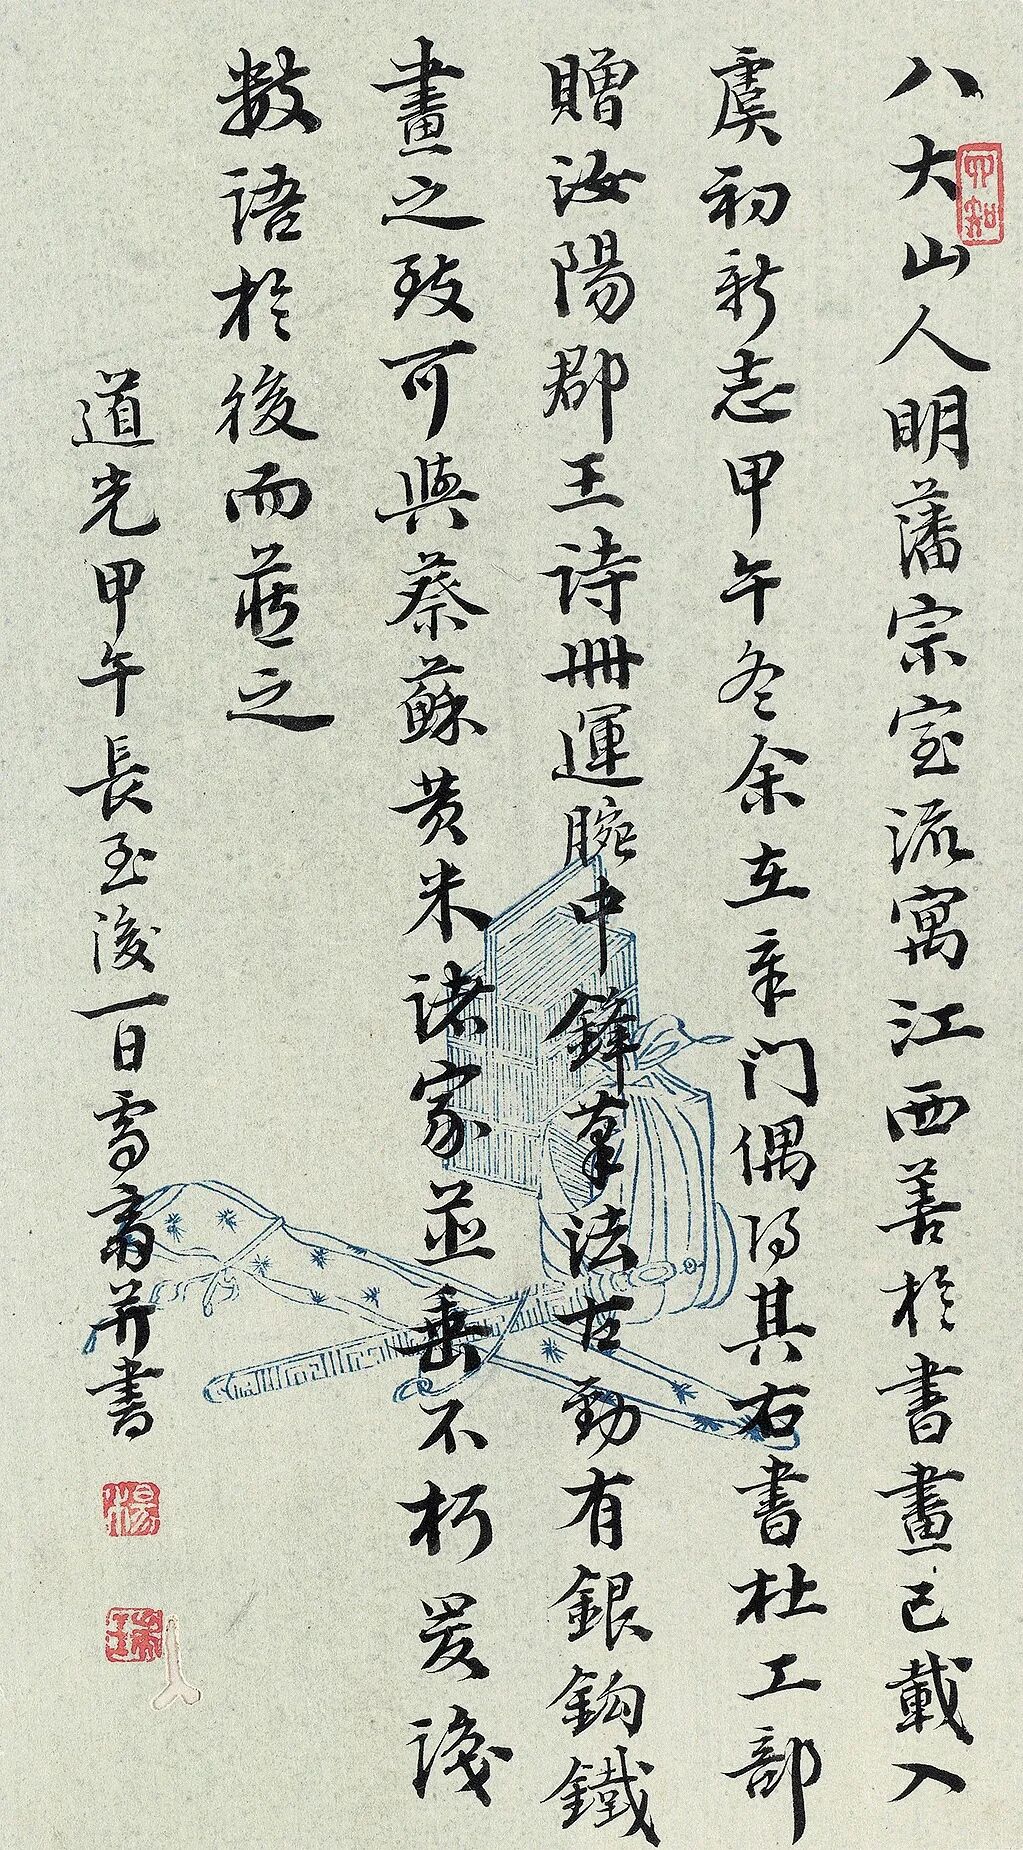 四知
八大山人明藩宗室流寓江西善於書畫已載入
虞初新志甲午冬余在章门偶得其右書杜工部
贈汝陽郡王詩冊運腕中鋒筆法古勁有銀鉤鐵
畫之致可與蔡蘇黄米諸家並垂不朽爰識
數語於後而藏之
道光甲午長至後一日雪齋并書
楊